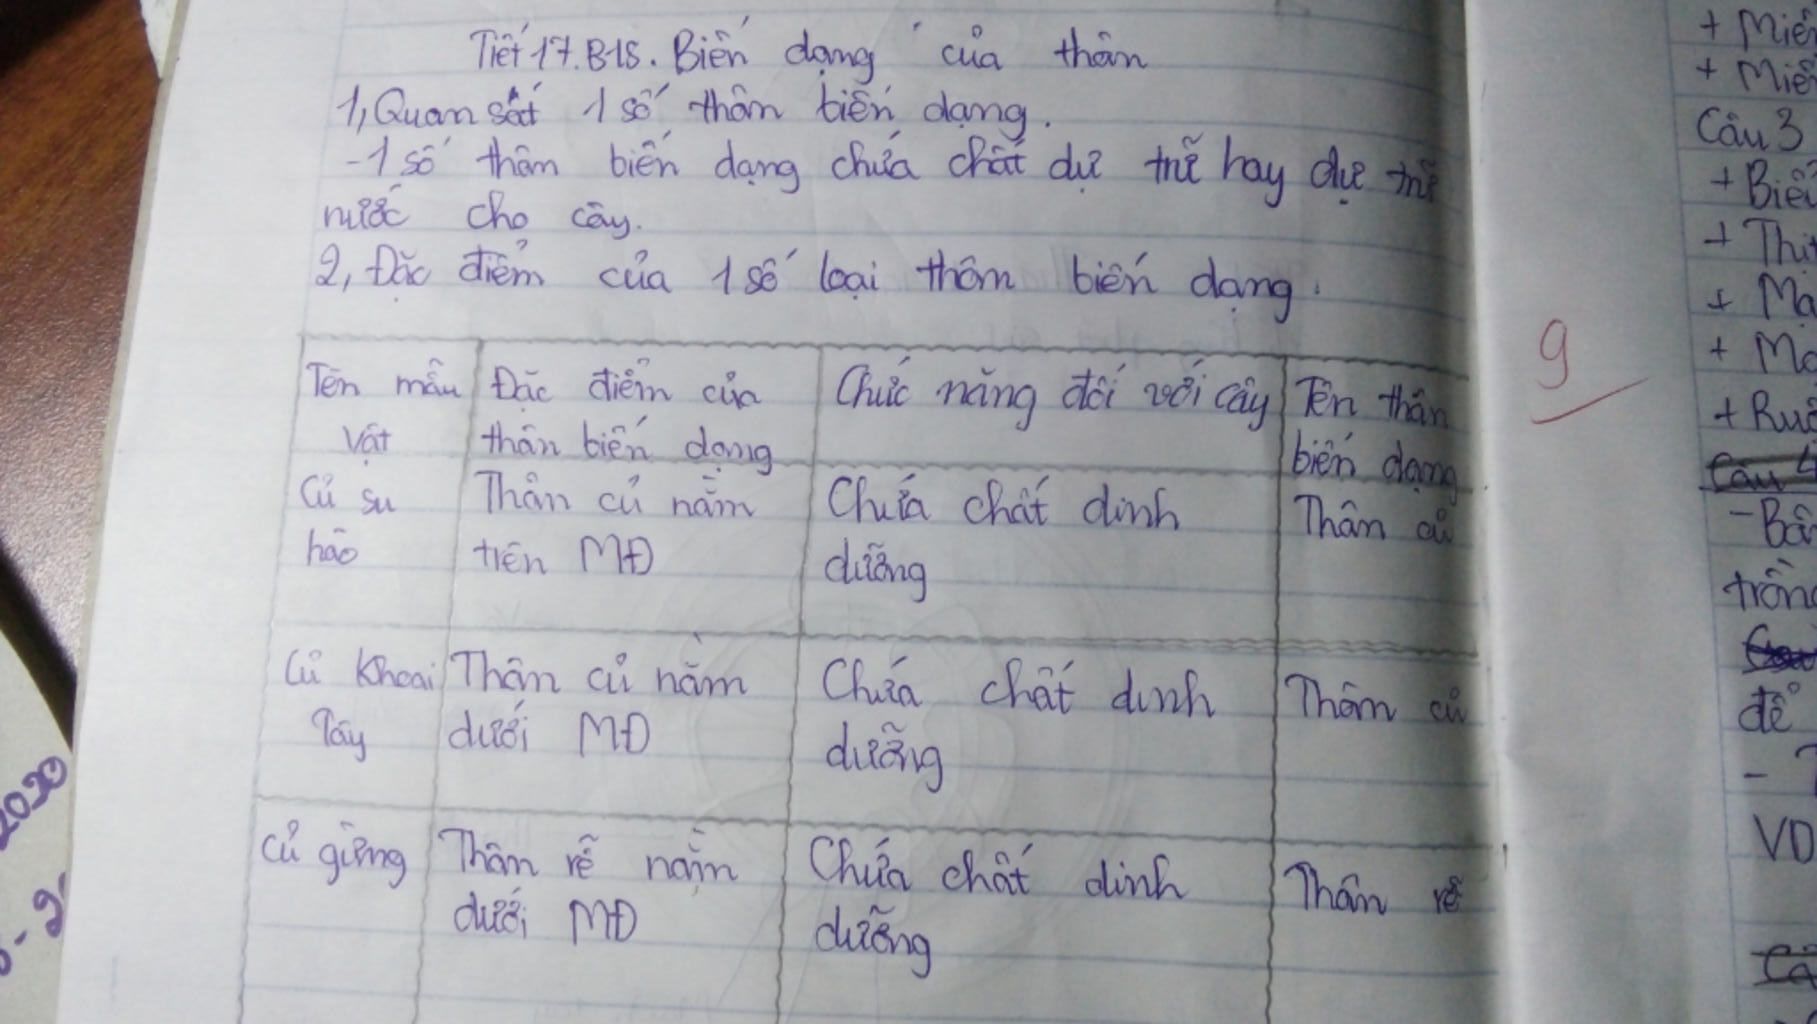 Tiết 17.B18. Biến dạng của thân
1, Quan sát 1 số thân biến dạng.
- 1 số thân biến dạng chứa chất dự trữ hay dự trữ
nước cho cây.
2, Đặc điểm của 1 số loại thân biến dạng.
Tên mẫu
vật
Đặc điểm của
thân biến dạng
Chức năng đối với cây
Tên thân
biến dạng
Củ su
hào
Thân củ nằm
trên MĐ
Chứa chất dinh
dưỡng
Thân củ
Củ khoai
Tây
Thân củ nằm
dưới MĐ
Chứa chất dinh
dưỡng
Thân củ
Củ gừng
Thân rễ nằm
dưới MĐ
Chứa chất dinh
dưỡng
Thân rễ
9
+ Miề
+ Miề
Câu 3
+ Biể
+ Thị
+ Mạ
+ Mạ
+ Ruộ
Câu 4
trồng
để
VD
2030